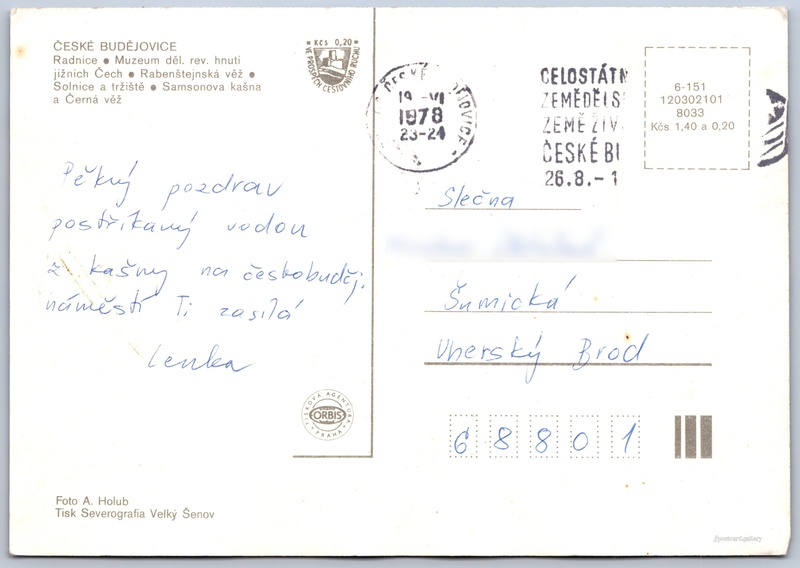 ČESKÉ BUDĚJOVICE
Radnice ● Muzeum děl. rev. hnutí
jižních Čech ● Rabenštejnská věž ●
Solnice a tržiště ● Samsonova kašna
a Černá věž
Kčs 0,20
VE PROSPĚCH CESTOVNÍHO RUCHU
ČESKÉ BUDĚJOVICE
19.-VI
1978
23-24
CELOSTÁTN
ZEMĚDĚLS
ZEMĚ ŽIV
ČESKÉ BU
26.8.-1
6-151
120302101
8033
Kčs 1,40 a 0,20
Pěkný pozdrav
postříkaný vodou
z kašny na českobuděj.
náměstí Ti zasílá
Lenka
Slečna
Šumická
Uherský Brod
68801
TISKOVÁ AGENTURA
ORBIS
PRAHA
Foto A. Holub
Tisk Severografia Velký Šenov
//postcard.gallery